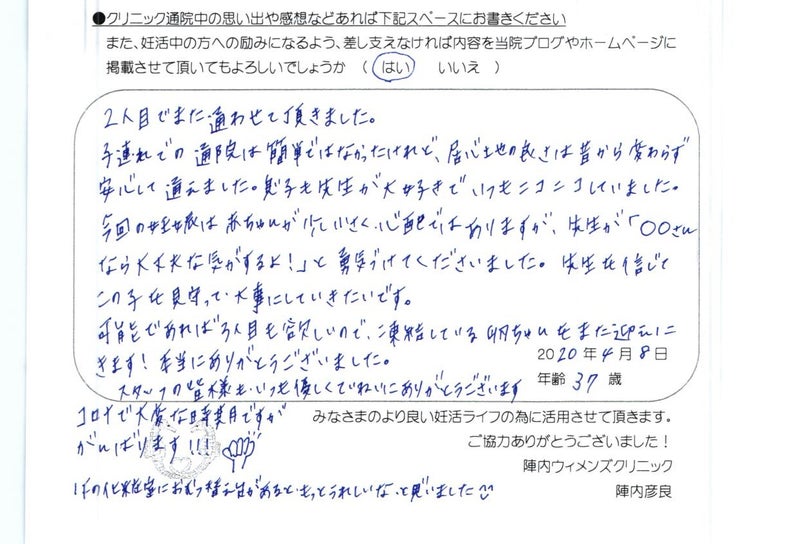 ●クリニック通院中の思い出や感想などあれば下記スペースにお書きください
また、妊活中の方への励みになるよう、差し支えなければ内容を当院ブログやホームページに
掲載させて頂いてもよろしいでしょうか （ はい いいえ ）
2人目でまた通わせて頂きました。
子連れでの通院は簡単ではなかったけれど、居心地の良さは昔から変わらず
安心して通えました。息子も先生が大好きでいつもニコニコしていました。
今回の妊娠は赤ちゃんが少し小さく、心配ではありますが、先生が「〇〇さん
なら大丈夫な気がするよ！」と勇気づけてくださいました。先生を信じて
この子を見守って大事にしていきたいです。
可能であれば3人目も欲しいので、凍結している卵ちゃんをまた迎えに
きます！本当にありがとうございました。
2020年4月8日
年齢 37 歳
スタッフの皆様もいつも優しくていねいにありがとうございます
コロナで大変な時期ですが
がんばります!!!
みなさまのより良い妊活ライフの為に活用させて頂きます。
ご協力ありがとうございました！
陣内ウィメンズクリニック
陣内彦良
1Fの化粧室におむつ替え台があるともっとうれしいな、と思いました